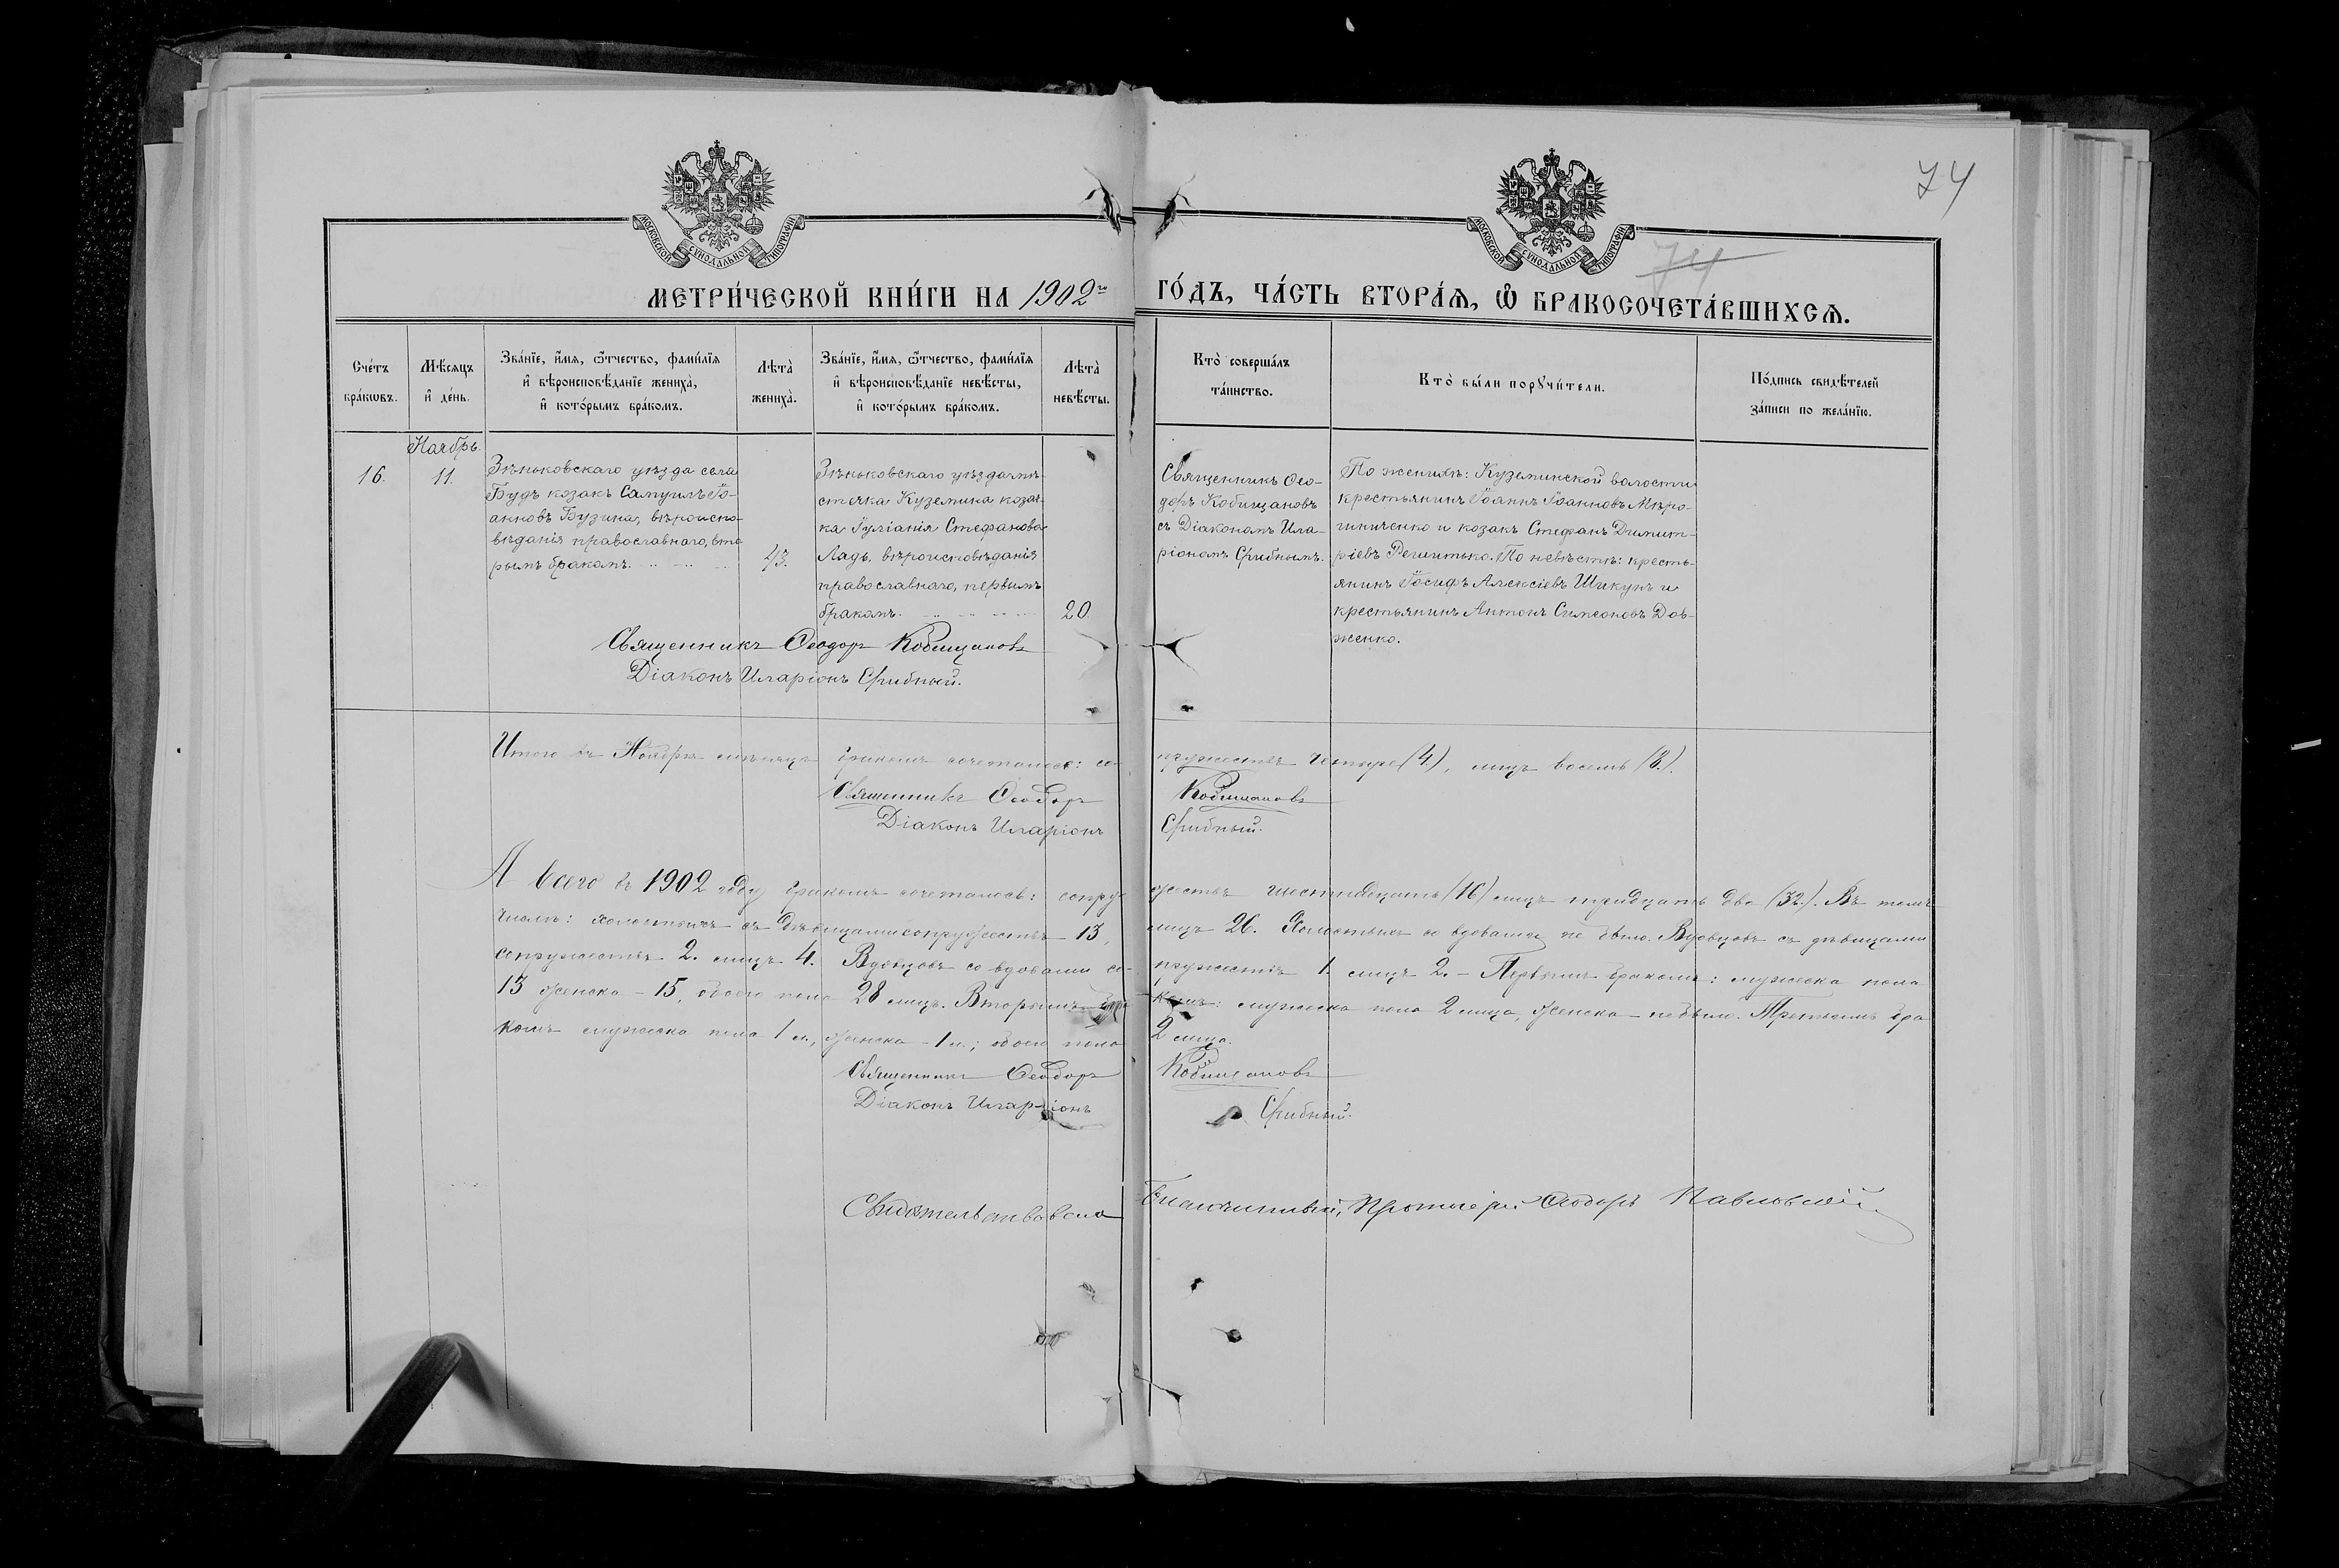 74
МОСКОВСКОЙ СѴНОДАЛЬНОЙ ТИПОГРАФІИ
МОСКОВСКОЙ СѴНОДАЛЬНОЙ ТИПОГРАФІИ
74
МЕТРИ́ЧЕСКОЙ КНИ́ГИ НА 1902го ГО́ДЪ, ЧА́СТЬ ВТОРА́Ѧ, Ѽ БРАКОСОЧЕТА́ВШИХСѦ.
Сче́тъ
бра́кωвъ.
Мѣ́сѧцъ
и҆ де́нь.
Зва́нїе, и҆́мѧ, ѻ҆́тчество, фами́лїѧ
и҆ вѣроисповѣ́данїе жениха̀,
и҆ кото́рымъ бра́комъ.
Лѣта̀
жениха̀.
Зва́нїе, и҆́мѧ, ѻ҆́тчество, фами́лїѧ
и҆ вѣроисповѣ́данїе невѣ́сты,
и҆ кото́рымъ бра́комъ.
Лѣта̀
невѣ́сты.
Кто̀ соверша́лъ
та́инство.
Кто̀ бы́ли порꙋчи́тели.
По́дпись свидѣ́телей
за́писи по жела́нїю.
Ноябрь.
16.
11.
Зѣньковскаго уѣзда села
Будъ козакъ Самуилъ Іо-
анновъ Бузина, вѣроиспо-
вѣданія православнаго, вто
рымъ бракомъ.
43.
Зѣньковскаго уѣзда мѣ-
стечка Куземина козач-
ка Іуліанія Стефанова
Ладъ, вѣроисповѣданія
православнаго, первымъ
бракомъ.
20.
Священникъ Ѳео-
доръ Кобищановъ
съ Діакономъ Ила-
ріономъ Срибнымъ.
По женихѣ: Куземинской волости
крестьянинъ Іоаннъ Іоанновъ Миро-
шниченко и козакъ Стефанъ Димит-
ріевъ Решитько. По невѣстѣ: кресть-
янинъ Іосифъ Алексіевъ Шикунъ и
крестьянинъ Антонъ Симеоновъ Дов-
женко.
Священникъ Ѳеодоръ Кобищановъ
Діаконъ Иларіонъ Срибный.
Итого въ Ноябрѣ мѣсяцѣ бракомъ сочеталось: со-пружествъ четыре (4), лицъ восемь (8).
Священникъ Ѳеодоръ Кобищановъ
Діаконъ Иларіонъ Срибный.
А всего въ 1902 году бракомъ сочеталось: супружествъ шестнадцать (16) лицъ тридцать два (32). Въ томъ
числѣ: холостыхъ съ дѣвицами сопружествъ - 13, лицъ 26. Холостыхъ со вдовами не было. Вдовцовъ съ дѣвицами
сопружествъ 2. лицъ 4. Вдовцовъ со вдовами со-пружествъ 1 лицъ 2. - Первымъ бракомъ: мужеска пола
13 женска - 15, обоего пола 28 лицъ. Вторымъ бра комъ: мужеска пола 2 лица, женска - не было. Третьимъ бра
комъ мужеска пола 1 л., женска - 1 л.; обоего пола 2 лица.
Священникъ Ѳеодоръ Кобищановъ
Діаконъ Иларіонъ Срибный.
Свидѣтельствовалъ Благочинный, Протоіерей Ѳеодоръ Павловскій.